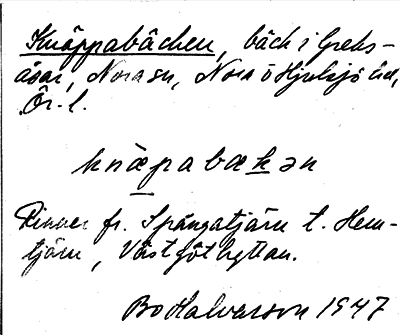 Knäppabäcken, bäck i Greks-
åsar, Nora sn, Nora o Hjulsjö bd,
Ör. l.
knäpabäkən
Rinner fr. Spångatjärn t. Hem-
tjärn, Västgöthyttan.
Bo Halvarson 1947